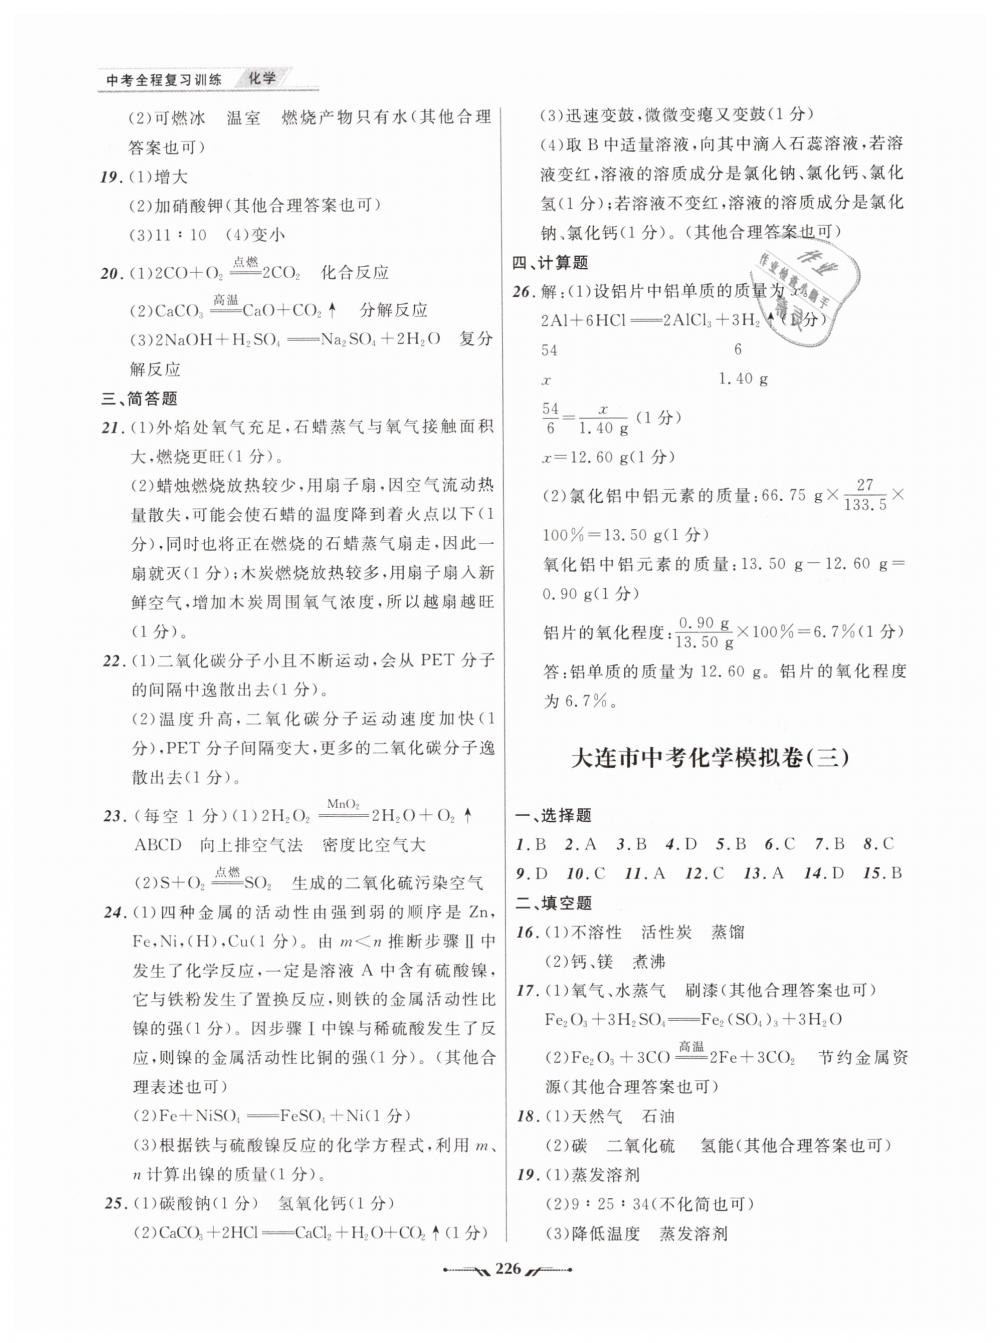 中考全程复习训练 化学
(2)可燃冰 温室 燃烧产物只有水(其他合理
答案也可)
19.(1)增大
(2)加硝酸钾(其他合理答案也可)
(3)11∶10 (4)变小
20.(1)2CO+O₂ 点燃═══ 2CO₂ 化合反应
(2)CaCO₃ 高温═══ CaO+CO₂↑ 分解反应
(3)2NaOH+H₂SO₄═══Na₂SO₄+2H₂O 复分
解反应
三、简答题
21.(1)外焰处氧气充足,石蜡蒸气与氧气接触面积
大,燃烧更旺(1分)。
(2)蜡烛燃烧放热较少,用扇子扇,因空气流动热
量散失,可能会使石蜡的温度降到着火点以下(1
分),同时也将正在燃烧的石蜡蒸气扇走,因此一
扇就灭(1分);木炭燃烧放热较多,用扇子扇入新
鲜空气,增加木炭周围氧气浓度,所以越扇越旺
(1分)。
22.(1)二氧化碳分子小且不断运动,会从PET分子
的间隔中逸散出去(1分)。
(2)温度升高,二氧化碳分子运动速度加快(1
分),PET分子间隔变大,更多的二氧化碳分子逸
散出去(1分)。
23.(每空1分)(1)2H₂O₂ MnO₂═══ 2H₂O+O₂↑
ABCD 向上排空气法 密度比空气大
(2)S+O₂ 点燃═══ SO₂ 生成的二氧化硫污染空气
24.(1)四种金属的活动性由强到弱的顺序是Zn,
Fe,Ni,(H),Cu(1分)。由m<n推断步骤Ⅱ中
发生了化学反应,一定是溶液A中含有硫酸镍,
它与铁粉发生了置换反应,则铁的金属活动性比
镍的强(1分)。因步骤Ⅰ中镍与稀硫酸发生了反
应,则镍的金属活动性比铜的强(1分)。(其他合
理表述也可)
(2)Fe+NiSO₄═══FeSO₄+Ni(1分)
(3)根据铁与硫酸镍反应的化学方程式,利用m、
n计算出镍的质量(1分)
25.(1)碳酸钠(1分) 氢氧化钙(1分)
(2)CaCO₃+2HCl═══CaCl₂+H₂O+CO₂↑(1分)
(3)迅速变鼓,微微变瘪又变鼓(1分)
(4)取B中适量溶液,向其中滴入石蕊溶液,若溶
液变红,溶液的溶质成分是氯化钠、氯化钙、氯化
氢(1分);若溶液不变红,溶液的溶质成分是氯化
钠、氯化钙(1分)。(其他合理答案也可)
四、计算题
26.解:(1)设铝片中铝单质的质量为x。
2Al+6HCl═══2AlCl₃+3H₂↑(1分)
54 6
x 1.40 g
54/6=x/1.40 g(1分)
x=12.60 g(1分)
(2)氯化铝中铝元素的质量:66.75 g×27/133.5×
100%=13.50 g(1分)
氧化铝中铝元素的质量:13.50 g-12.60 g=
0.90 g(1分)
铝片的氧化程度:0.90 g/13.50 g×100%=6.7%(1分)
答:铝单质的质量为12.60 g。铝片的氧化程度
为6.7%。
大连市中考化学模拟卷(三)
一、选择题
1.B 2.A 3.B 4.D 5.B 6.C 7.B 8.C
9.D 10.C 11.A 12.C 13.A 14.D 15.B
二、填空题
16.(1)不溶性 活性炭 蒸馏
(2)钙、镁 煮沸
17.(1)氧气、水蒸气 刷漆(其他合理答案也可)
Fe₂O₃+3H₂SO₄═══Fe₂(SO₄)₃+3H₂O
(2)Fe₂O₃+3CO 高温═══ 2Fe+3CO₂ 节约金属资
源(其他合理答案也可)
18.(1)天然气 石油
(2)碳 二氧化硫 氢能(其他合理答案也可)
19.(1)蒸发溶剂
(2)9∶25∶34(不化简也可)
(3)降低温度 蒸发溶剂
226
作业
作业检查小助手
精灵